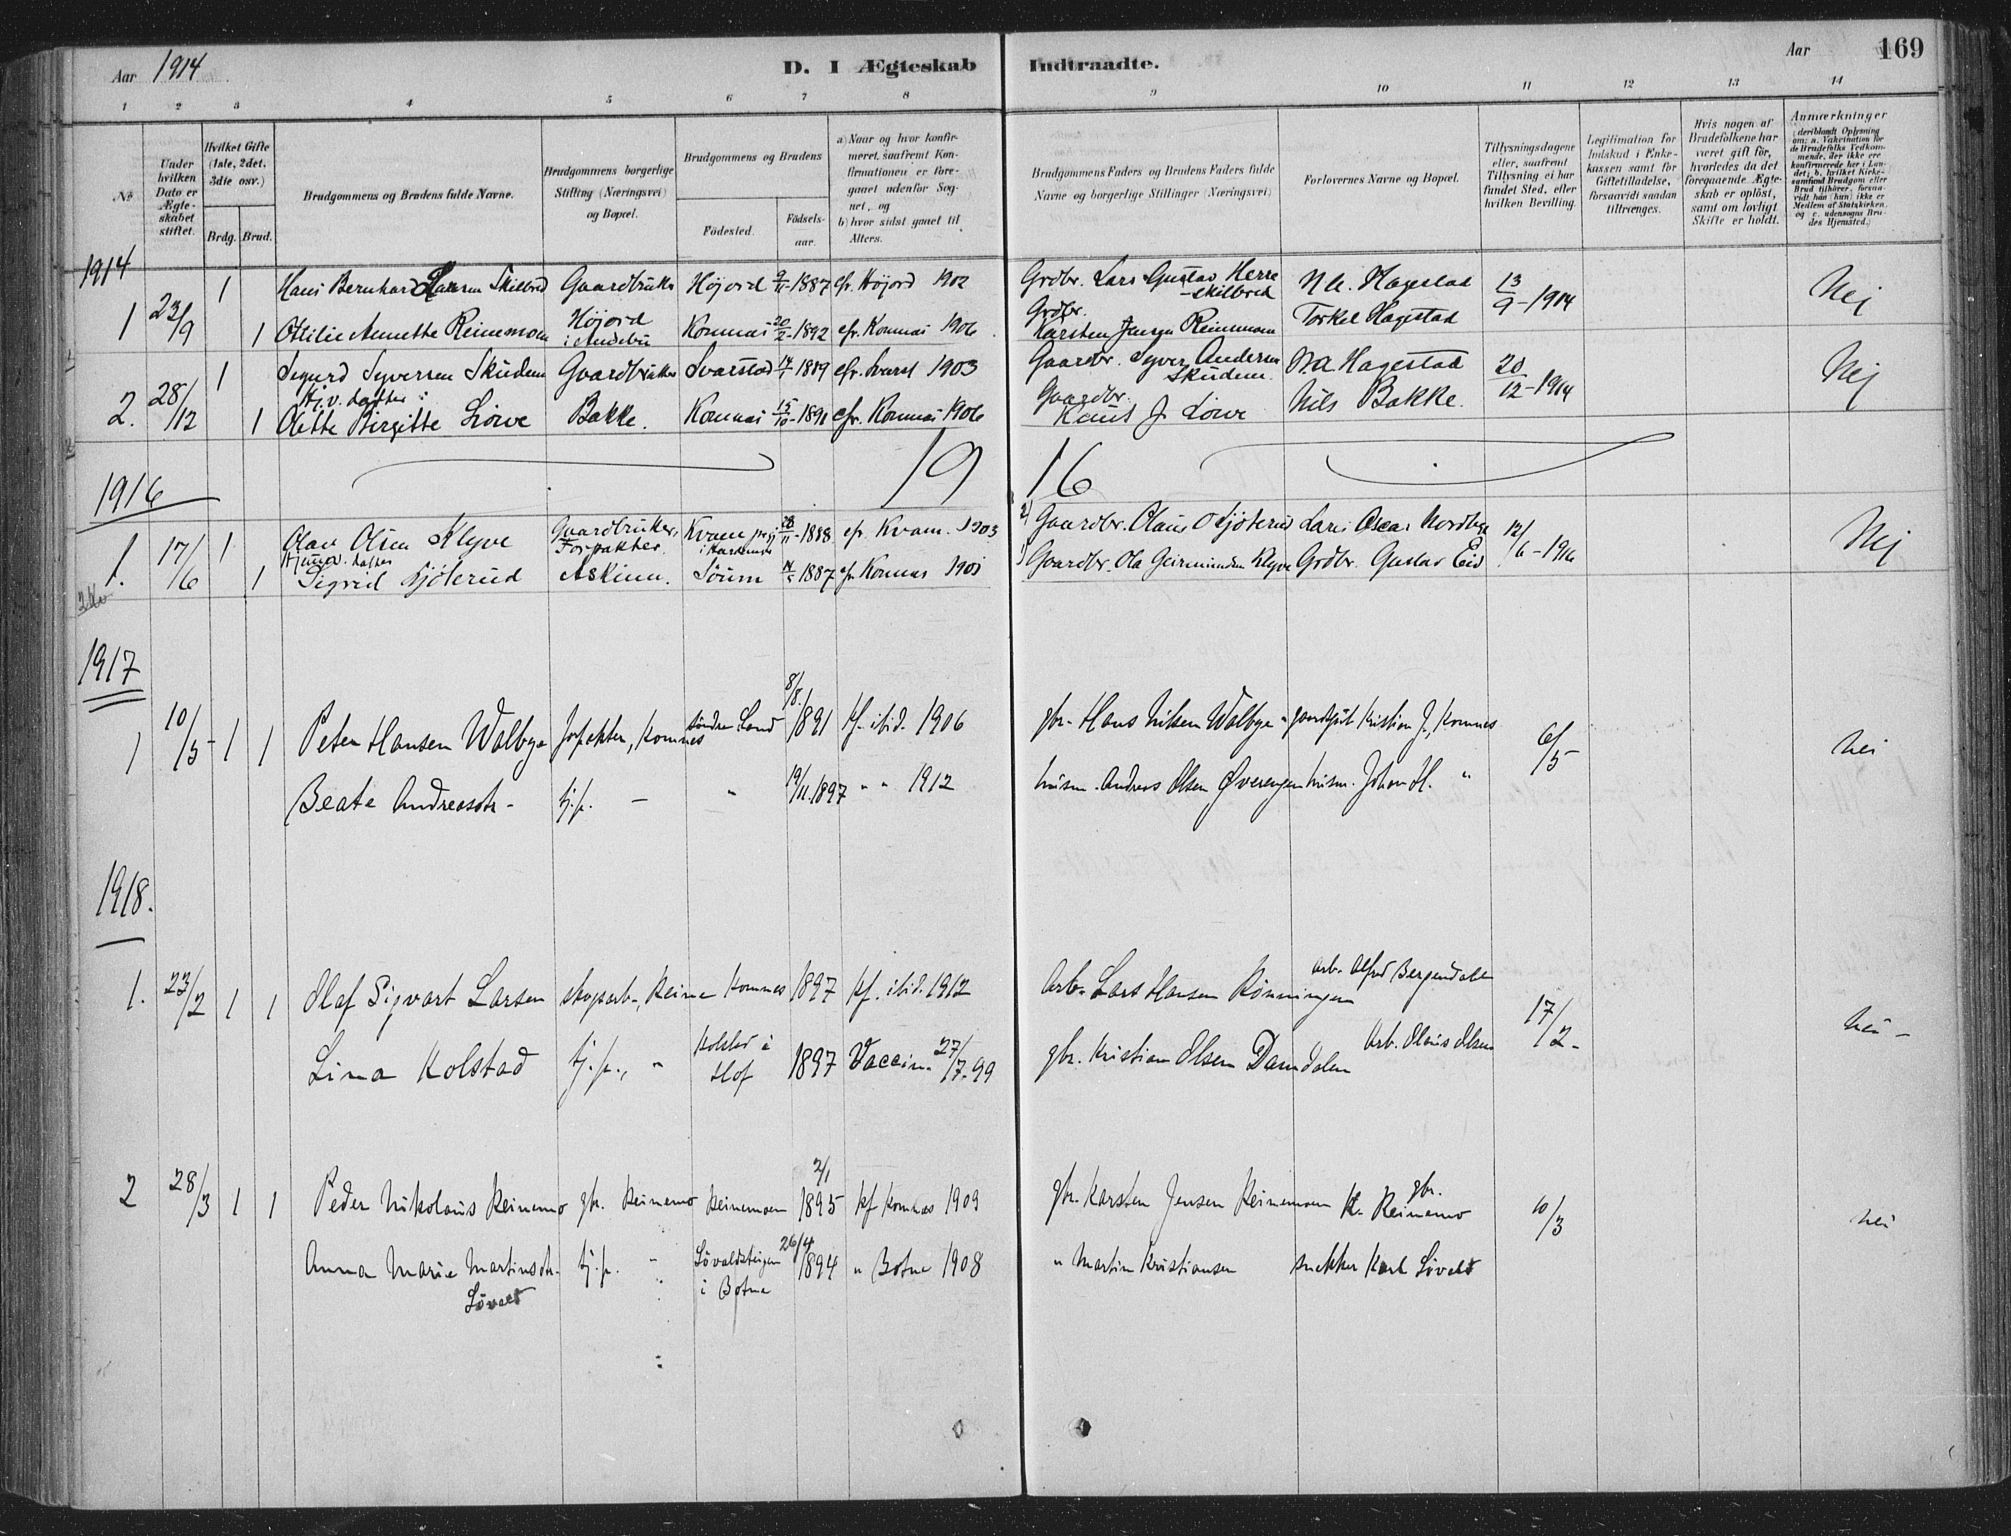 Aar 1914
D. I Ægteskab Indtraadte.
Aar 169
1 2 3 4 5 6 7 8 9 10 11 12 13 14
No
Under hvilken Dato er Ægteskabet stiftet.
Hvilket Gifte (1ste, 2det, 3die osv.)
Brdg. Brud.
Brudgommens og Brudens fulde Navne.
Brudgommens borgerlige Stilling (Næringsvei) og Bopæl.
Brudgommens og Brudens
Födested. Födsels-aar.
a) Naar og hvor konfirmeret, saafremt Konfirmationen er foregaaet udenfor Sognet, og
b) hvor sidst gaaet til Alters.
Brudgommens Faders og Brudens Faders fulde Navne og borgerlige Stillinger (Næringsvei)
Forlovernes Navne og Bopæl.
Tillysningsdagene eller, saafremt Tillysning ei har fundet Sted, efter hvilken Bevilling.
Legitimation for Indskud i Enkekassen samt for Giftetilladelse, forsaavidt saadan tiltrænges.
Hvis nogen af Brudefolkene har været gift för, hvorledes da det foregaaende Ægteskab er oplöst, samt om lovligt Skifte er holdt.
Anmærkninger
1914
1 23/9 1 Hans Bernhard Larsen Skilbred Gaardbruker Höjord 9/11-1887 cfr. Höjord 1902 Grdbr. Lars Gustav Herre-Skilbred N. A. Hagestad 13/9-1914 Nej
1 Otilie Annette Reinemoen Höjord i Andebu Komnæs 20/2-1892 cfr. Komnæs 1906 Grdbr. Karsten Jensen Reinemoen Torkel Hagestad
2. 28/12 1 Sigurd Syversen Skudem Gaardbruker Svarstad 14/1 1889 cfr. Svarst 1903 Gaardbr. Syver Andersen Skudem N. A. Hagestad 20/12-1914 Nej
1 Hj.v. datter: Olette Birgitte Löwe Bakke. Komnæs 15/10-1891 cfr. Komnæs 1906 Gaardbr. Knut J. Löwe Nils Bakke.
1916 19 16
1. 17/6 1 Olav Olsen Klyve Gaardbruker, Forpakter Kvam 28/11-1888 cfr. Kvam. 1903 2) Gaardbr. Olaus O Sjöterud Lars Oscar Nordbye 12/6-1916 Nej
1 Hjemmev. datter Sigrid Sjöterud Askim. Sörum 1887 cfr Komnæs 1901 1) Gaardbr. Ola Geirmunden Klyve Grdbr. Gustav Eid
1917
1 10/5- 1 1 Peter Hansen Walbye forpakter, Komnes Söndre Land 8/8. 1891 kf. ibid. 1906 gbr. Hans Nilsen Walbye gaardgut Kristian J., Komnes 6/5 nei
Beate Andreasdtr- tj.p. - " 19/11.1897 " " 1912 husm. Andreas Olsen Øverengen husm. Johan H. "
1918.
1. 23/2 1 1 Olaf Sigvart Larsen skogsarb., Reine Komnes 1897 kf. ibid. 1912 Arb. Lars Hansen Rönningen arb. Alfred Bergendalen 17/2- nei -
Lina Kolstad tj.p., " Kolstad i Hof 1897 Vaccin. 27/7-99 gbr. Kristian Olsen Damdalen Arb. Olaus Olsen
2 28/3 1 1 Peder Nikolaus Reinemo gbr. Reinemo Reinemoen 2/1 1895 kf Komnæs 1909 gbr. Karsten Jensen Reinemoen gbr. K. Reinemo 10/3 nei
Anna Marie Martinsdtr. Lövald tj.p. " Lövaldsteigen i Botne 26/4 1894 " Botne 1908 " Martin Kristiansen snekker Karl Lövald